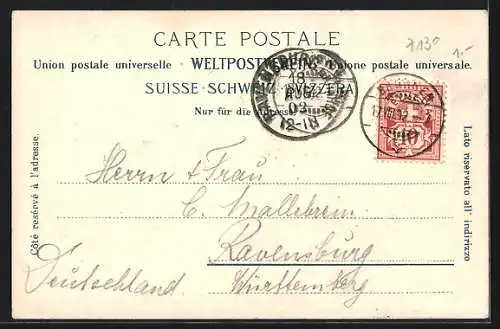 CARTE POSTALE
7130
1.-
Union postale universelle. WELTPOSTVEREIN Unione postale universale.
SUISSE·SCHWEIZ·SVIZZERA
Nur für die Adresse.
18
AUG
03
12-1N
10
Côté resérvé à l'adresse.
Lato riservato all' indirizzo
Herrn & Frau
C. Mallebrein
Ravensburg
Deutschland. Württemberg